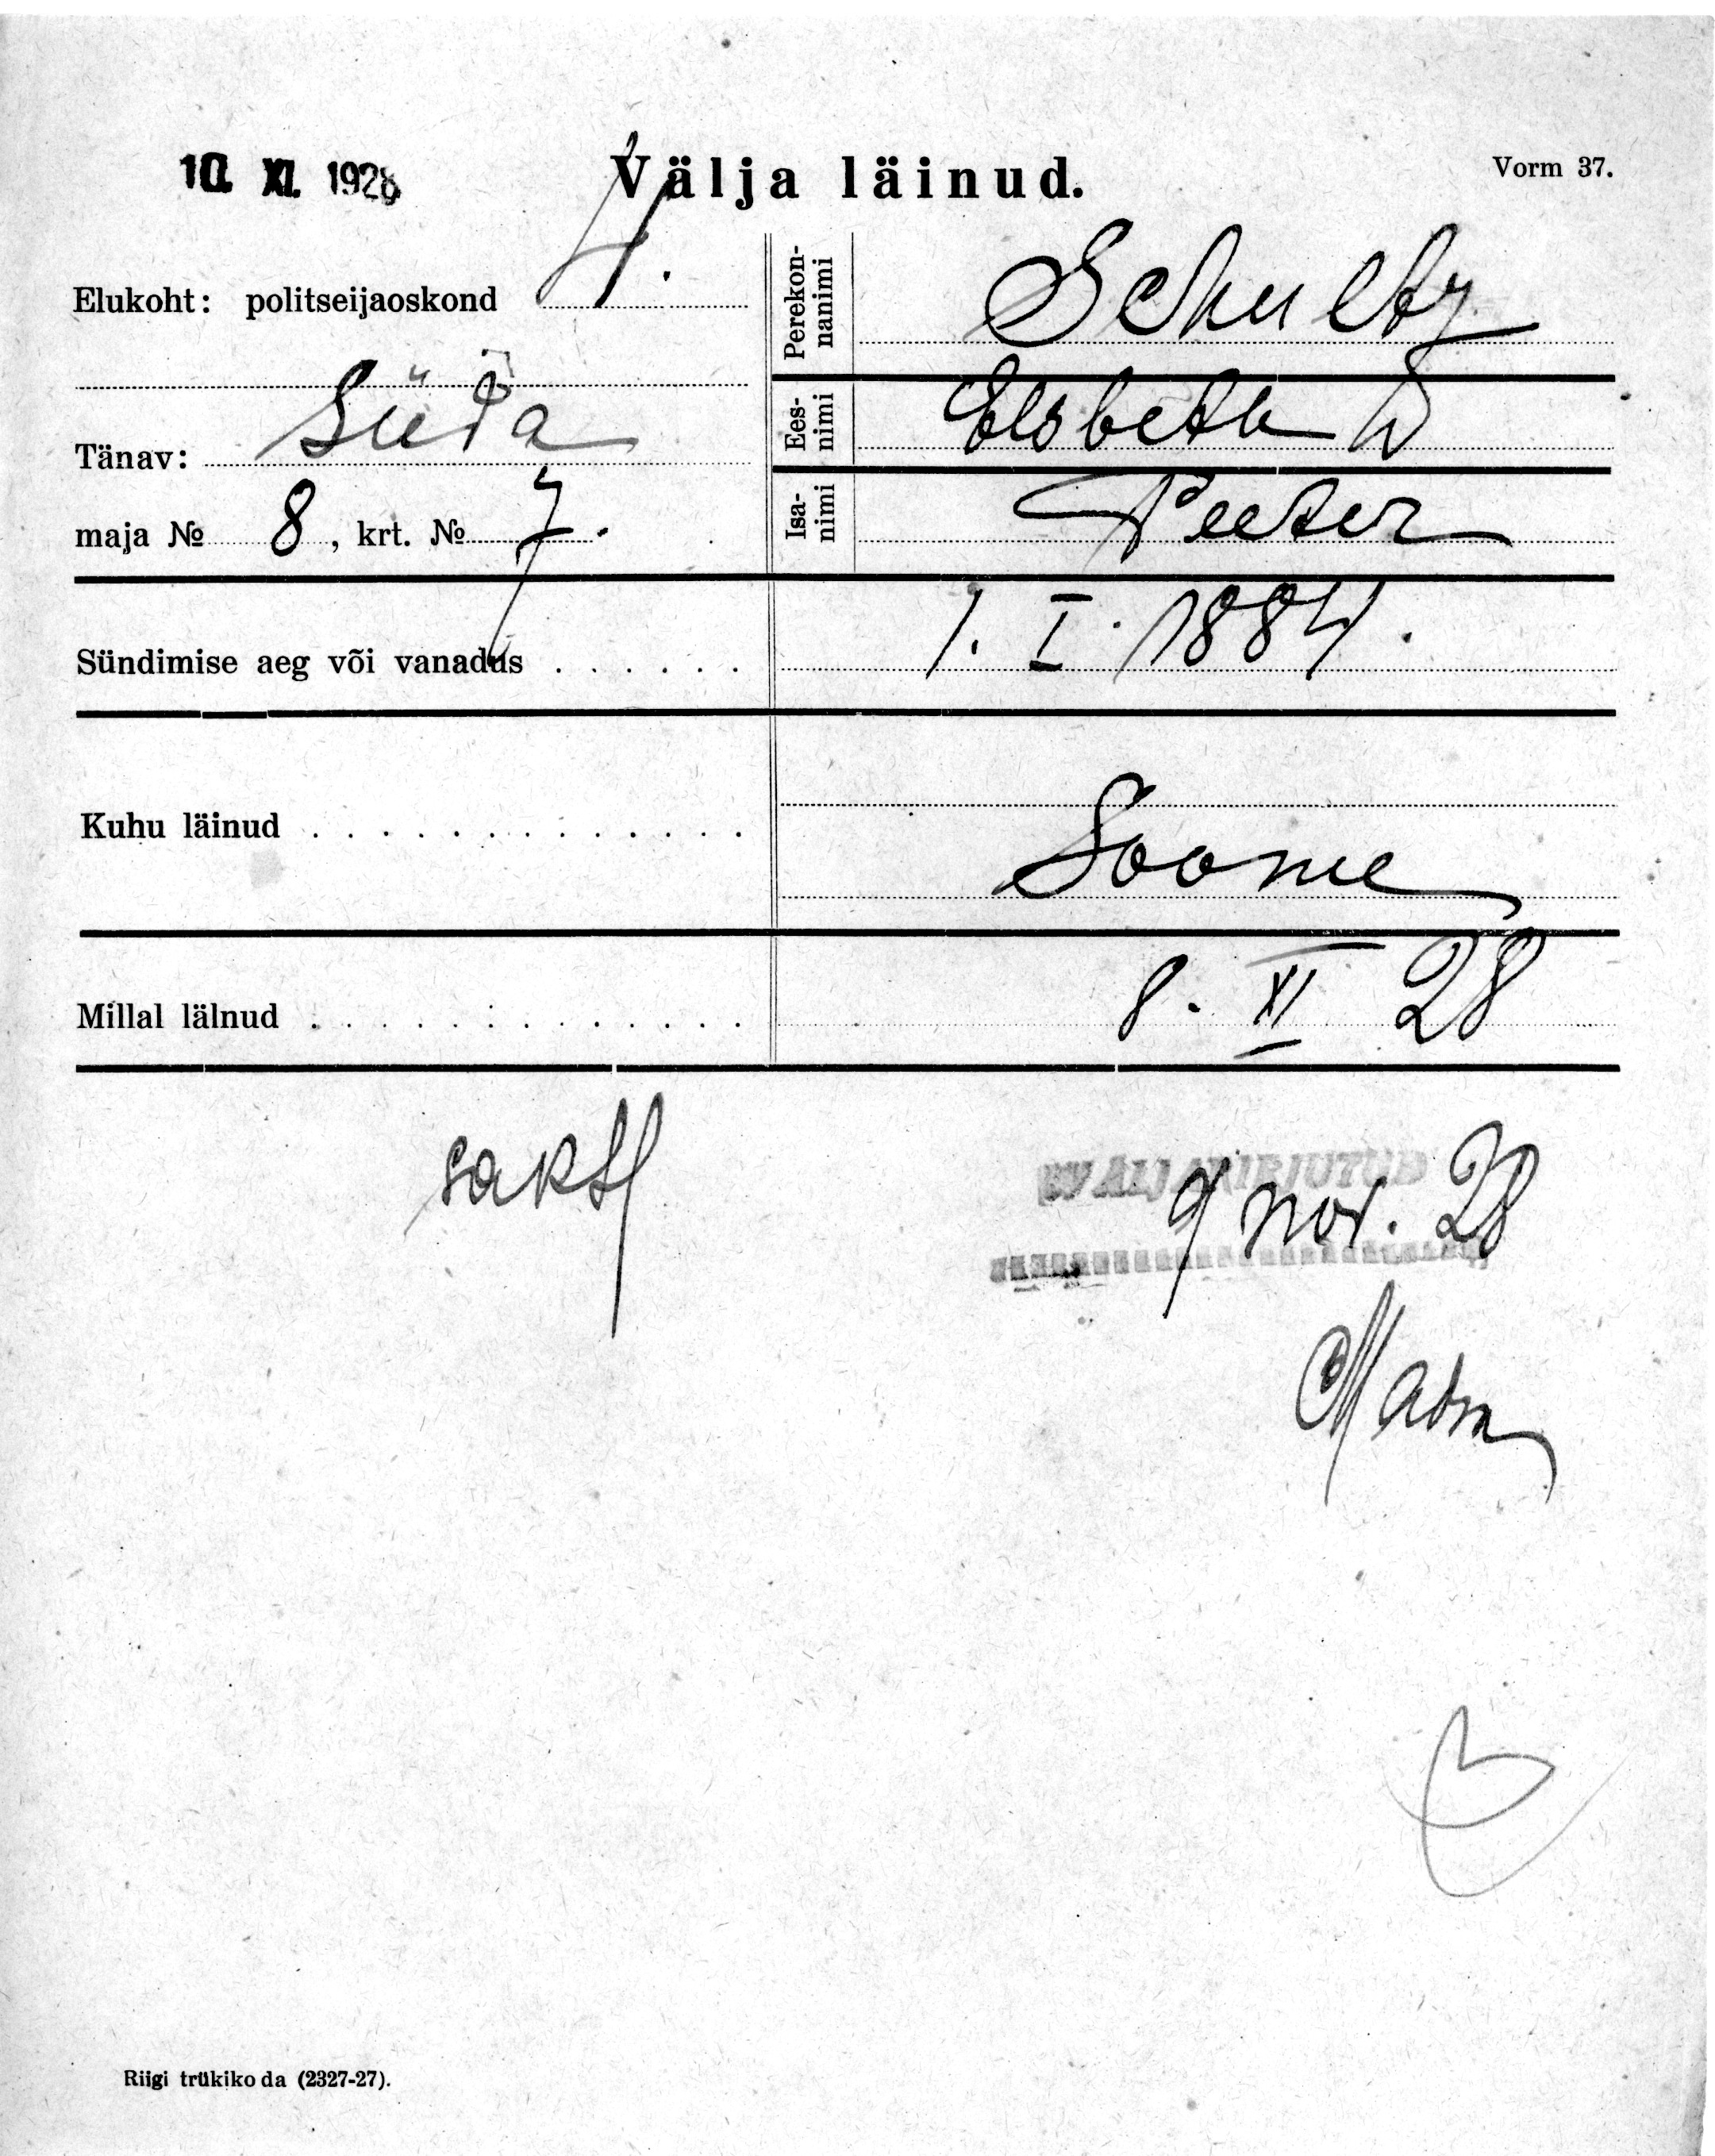 10. XI. 1928
Välja läinud.
Vorm 37.
Elukoht: politseijaoskond 4.
Tänav: Süda
maja № 8, krt. № 7.
Perekon-
nanimi Schultz
Ees-
nimi Elsbeth
Isa-
nimi Peeter
Sündimise aeg või vanadus . . . . . . 1. I. 1884.
Kuhu läinud . . . . . . . . . . . . . Soome
Millal läinud . . . . . . . . . . . . . 8. XI 28
VÄLJAKIRJUTUD
9 nov. 28
Riigi trükikoda (2327-27).